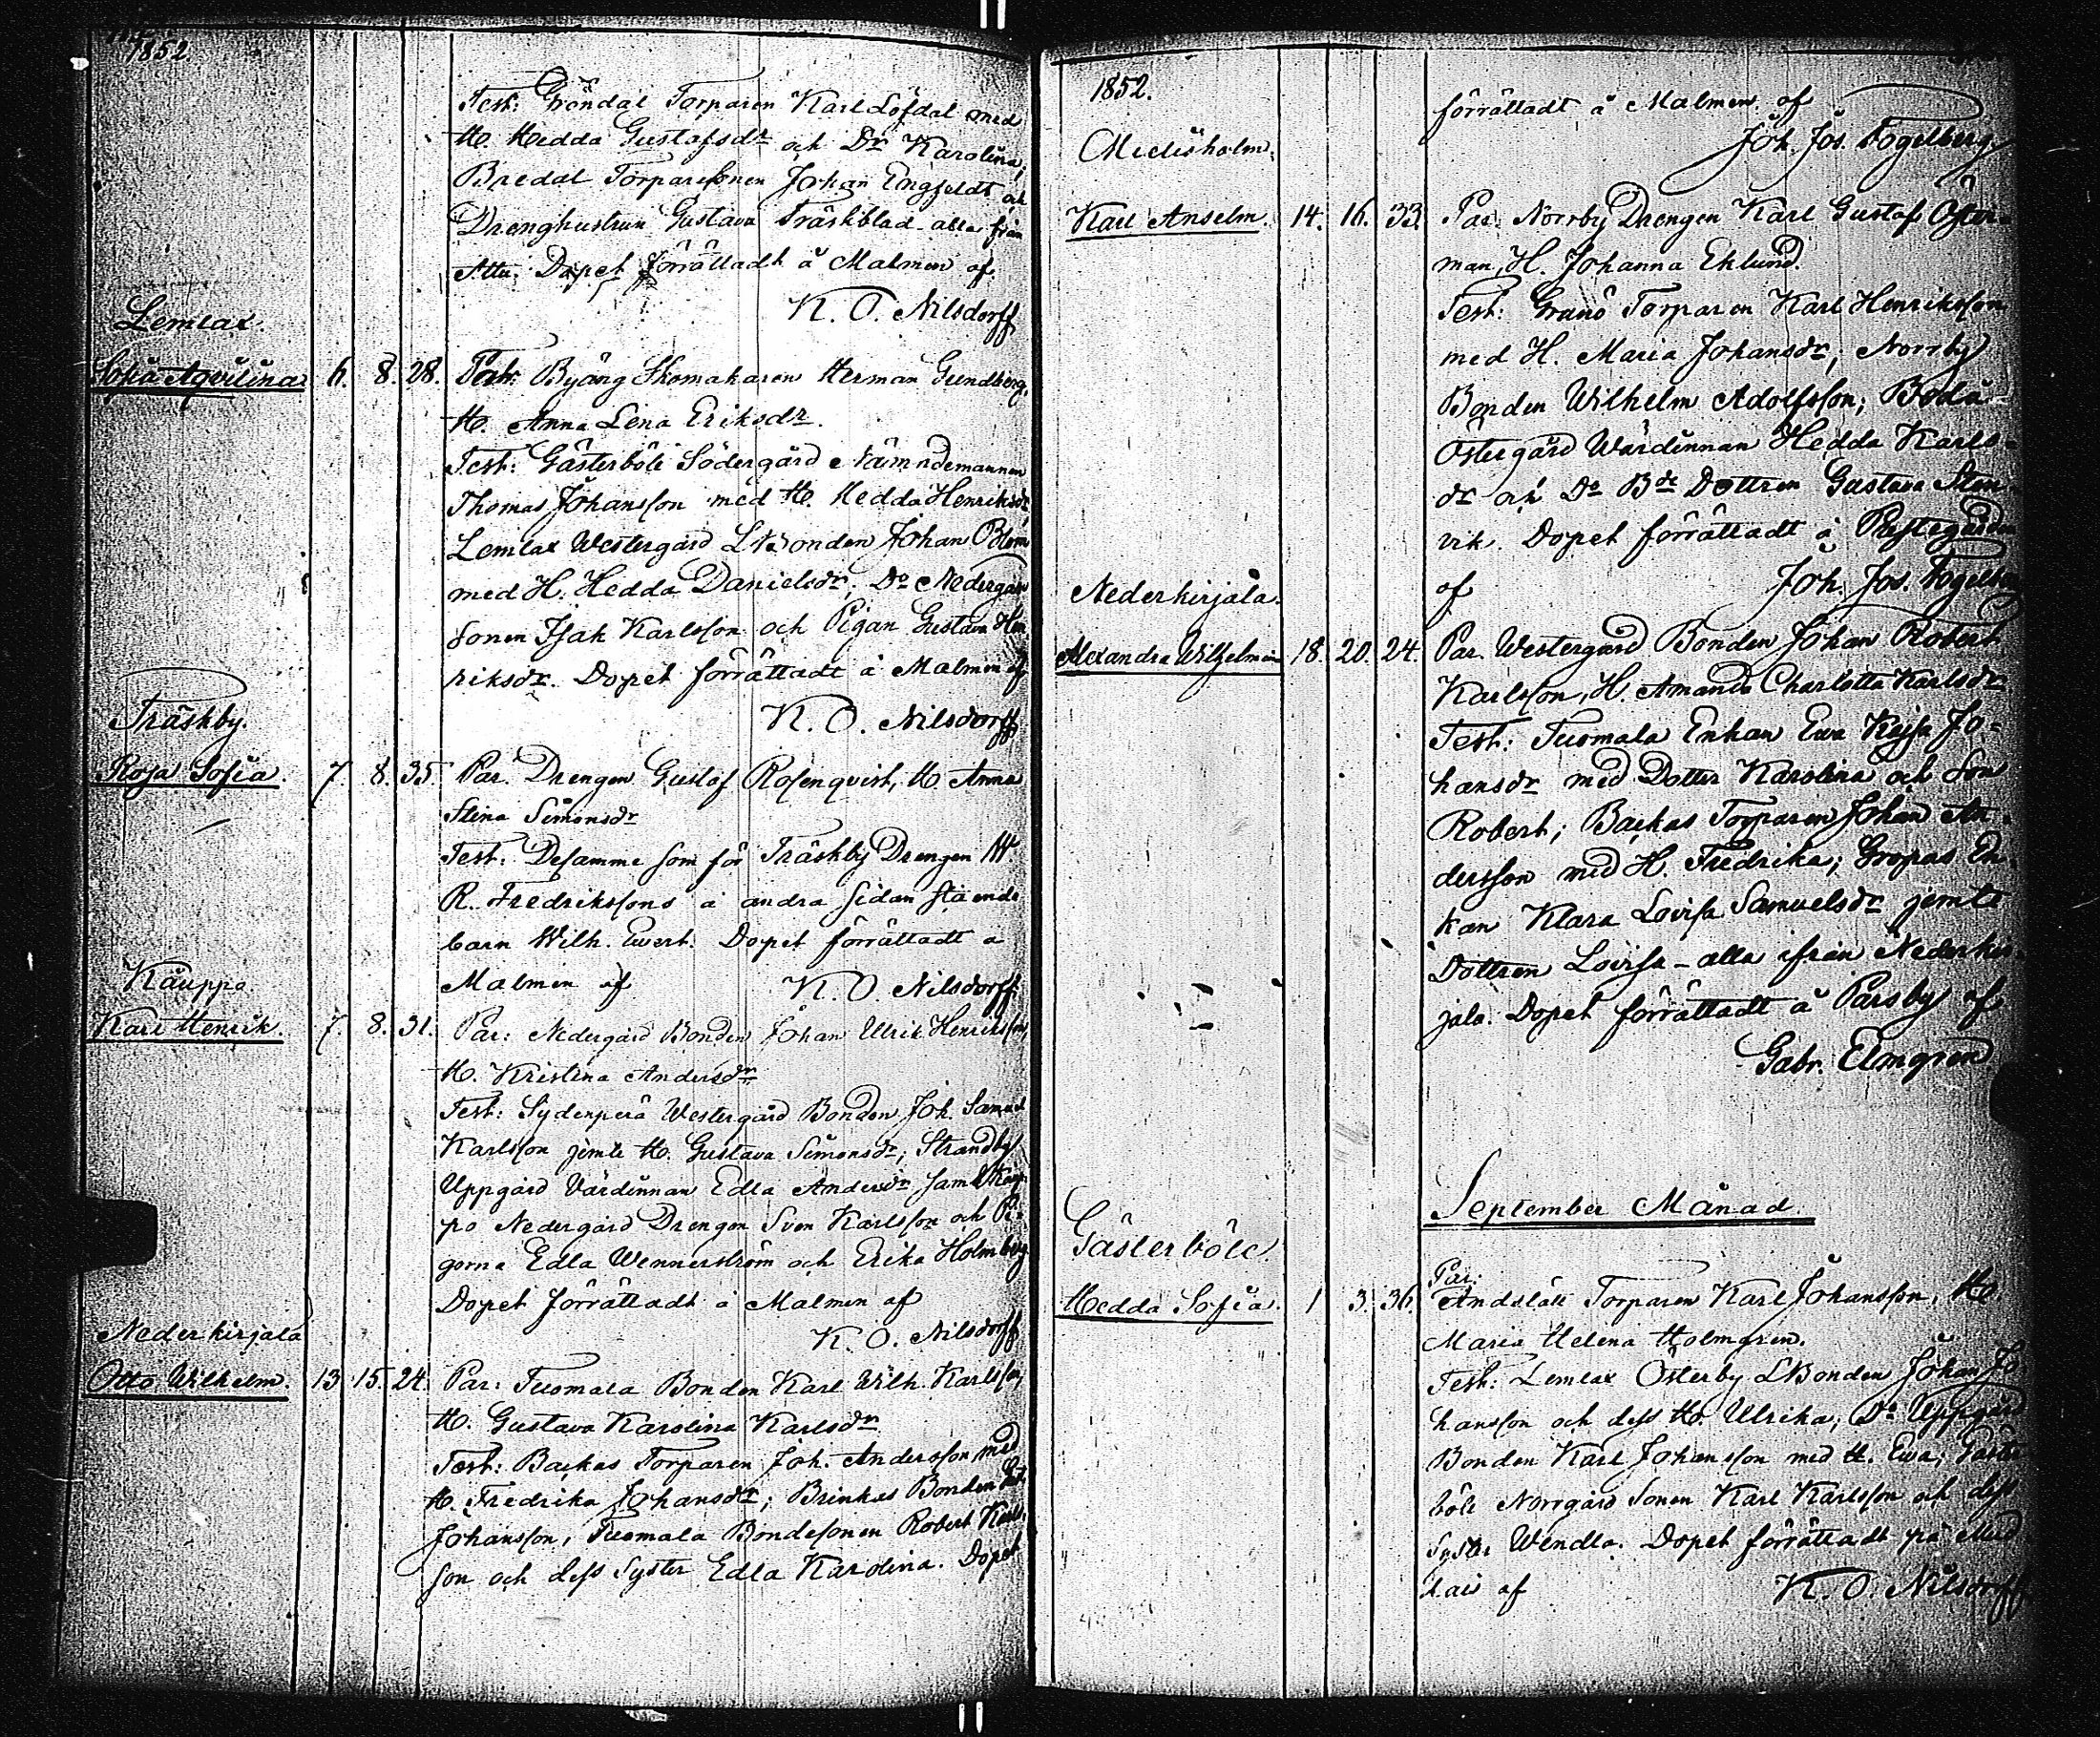 1852.
Test: Gröndal Torparen Karl Löfdal med
H. Hedda Gustafsdr och Dr Karolina,
Bredal Torparesonen Johan Engfeldt och
Drenghustrun Gustava Träskblad alla från
Attu. Dopet förrättadt å Malmen af
K. O. Nilsdorff
Lemlax.
Sofia Aqvilina 6. 8. 28. Par: Byäng Skomakaren Herman Gundberg,
H. Anna Lena Eriksdr.
Test: Gästerböle Södergård Nämndemannen
Thomas Johansson med H. Hedda Henriksdr
Lemlax Westergård LBonden Johan Blom
med H. Hedda Danielsdr; Do Nedergård
Sonen Isak Karlsson och Pigan Gustava Hen-
riksdr. Dopet förrättadt å Malmen af
K. O. Nilsdorff
Träskby.
Rosa Sofia. 7. 8. 35. Par. Drengen Gustaf Rosenqvist, H. Anna
Stina Simonsdr
Test: Desamme som för Träskby Drengen W.
R. Fredrikssons å andra sidan stående
barn Wilh. Evert. Dopet förrättadt å
Malmen af K. O. Nilsdorff
Käuppo.
Karl Henrik. 7. 8. 31. Par: Nedergård Bonden Johan Ulrik Henriksson,
H. Kristina Andersdr
Test: Sydenperä Westergård Bonden Joh. Samuel
Karlsson jemte H. Gustava Simonsdr; Strandby
Uppgård Värdinnan Edla Andersdr samt Käup-
po Nedergård Drengen Sven Karlsson och Pi-
gorna Edla Wennerström och Erika Holmberg
Dopet förrättadt å Malmen af
K. O. Nilsdorff
Nederkirjala
Otto Wilhelm. 13 15. 24. Par: Tuomala Bonden Karl Wilh. Karlsson,
H. Gustava Karolina Karlsdr
Test: Backas Torparen Joh. Andersson med
H. Fredrika Johansdr; Brinkas Bonden
Johansson, Tuomala Bondesonen Robert Karls-
son och dess Syster Edla Karolina. Dopet
1852.
förrättadt å Malmen af
Joh. Jos. Fogelberg
Mielisholm.
Karl Anselm. 14. 16. 33. Par. Norrby Drengen Karl Gustaf Öster-
man, H. Johanna Eklund.
Test: Granö Torparen Karl Henriksson
med H. Maria Johansdr; Norrby
Bonden Wilhelm Adolfsson; Bodu
Östergård Wärdinnan Hedda Karls-
dr och Do Bde Dottren Gustava Sten-
vik. Dopet förrättadt å Prestgården
af Joh. Jos. Fogelberg
Nederkirjala.
Alexandra Wilhelmina 18. 20. 24. Par. Westergård Bonden Johan Robert
Karlsson, H. Amanda Charlotta Karlsdr
Test: Tuomala Enkan Eva Kajsa Jo-
hansdr med Dotter Karolina och Son
Robert; Backas Torparen Johan An-
dersson med H. Fredrika; Gropas En-
kan Klara Lovisa Samuelsdr jemte
Dottren Lovisa - alla ifrån Nederkir-
jala. Dopet förrättadt å Parsby af
Gabr. Elmgren
September Månad.
Gästerböle
Hedda Sofia. 1 3. 36. Par:
Andslätt Torparen Karl Johansson, H
Maria Helena Holmgren.
Test: Lemlax Österby LBonden Johan Jo-
hansson och dess H. Ulrika; Do Uppgård
Bonden Karl Johansson med H. Eva; Gäster-
böle Norrgård Sonen Karl Karlsson och dess
Syster Wendla. Dopet förrättadt på Mud
lais af K. O. Nilsdorff